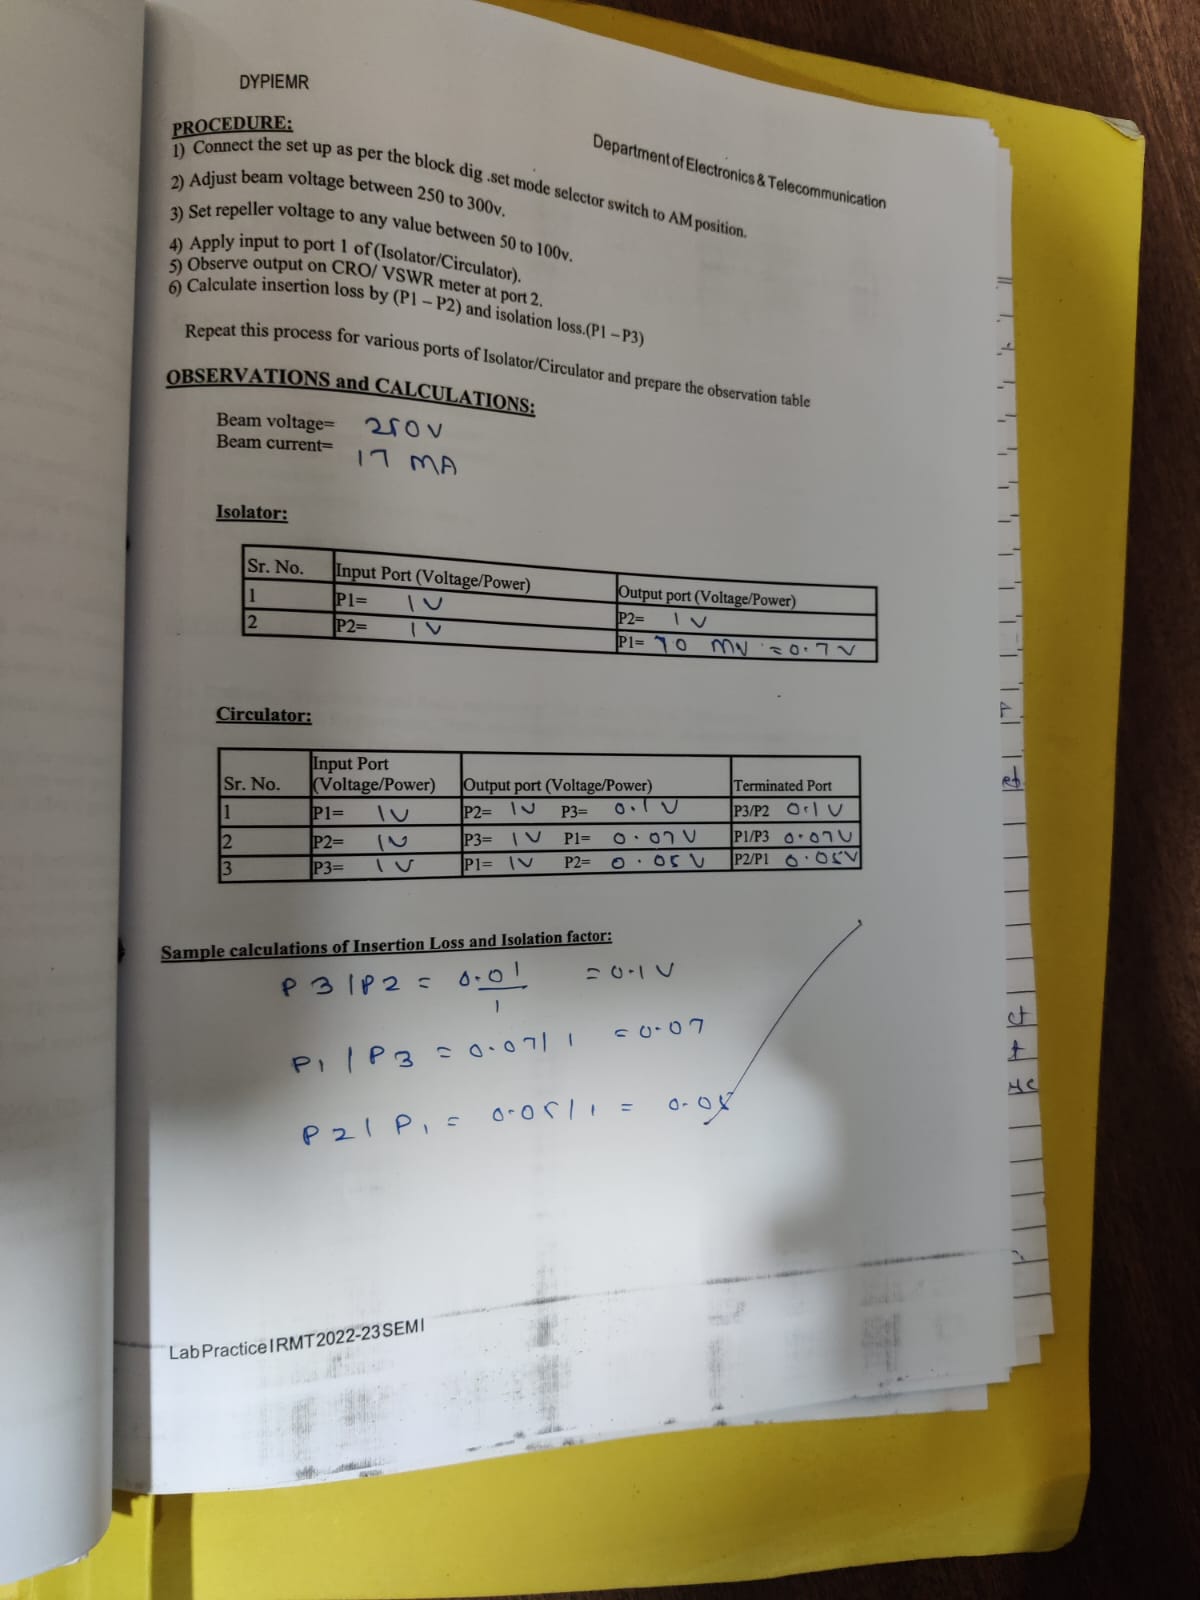 DYPIEMR
Department of Electronics & Telecommunication
PROCEDURE:
1) Connect the set up as per the block dig .set mode selector switch to AM position.
2) Adjust beam voltage between 250 to 300v.
3) Set repeller voltage to any value between 50 to 100v.
4) Apply input to port 1 of (Isolator/Circulator).
5) Observe output on CRO/ VSWR meter at port 2.
6) Calculate insertion loss by (P1 – P2) and isolation loss.(P1 – P3)
Repeat this process for various ports of Isolator/Circulator and prepare the observation table
OBSERVATIONS and CALCULATIONS:
Beam voltage= 250V
Beam current= 17 MA
Isolator:
Sr. No. Input Port (Voltage/Power) Output port (Voltage/Power)
1 P1= 1V P2= 1V
2 P2= 1V P1= 70 MV = 0.7V
Circulator:
Sr. No. Input Port (Voltage/Power) Output port (Voltage/Power) Terminated Port
1 P1= 1V P2= 1V P3= 0.1V P3/P2 0.1V
2 P2= 1V P3= 1V P1= 0.07V P1/P3 0.07V
3 P3= 1V P1= 1V P2= 0.05V P2/P1 0.05V
Sample calculations of Insertion Loss and Isolation factor:
P3/P2 = 0.01/1 = 0.1V
P1/P3 = 0.07/1 = 0.07
P2/P1 = 0.05/1 = 0.05
Lab Practice I RMT 2022-23 SEM I